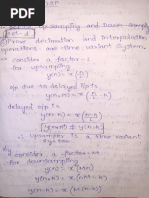 upsampling and Down Sampling
Unit - 1
Prove decimation and Interpolation
operations are time variant System.
→ Consider a factor - L
for upsampling
y(n) = x(n/L)
o/p due to delayed I/p is
y(n,k) = x(n/L - k)
delayed o/p is
y(n-k) = x(n-k/L)
y(n,k) ≠ y(n-k)
∴ upsampler is a time variant
System
by consider, a factor - M
for downsampling
y(n) = x(Mn)
y(n,k) = x(Mn-k)
y(n-k) = x(M(n-k))